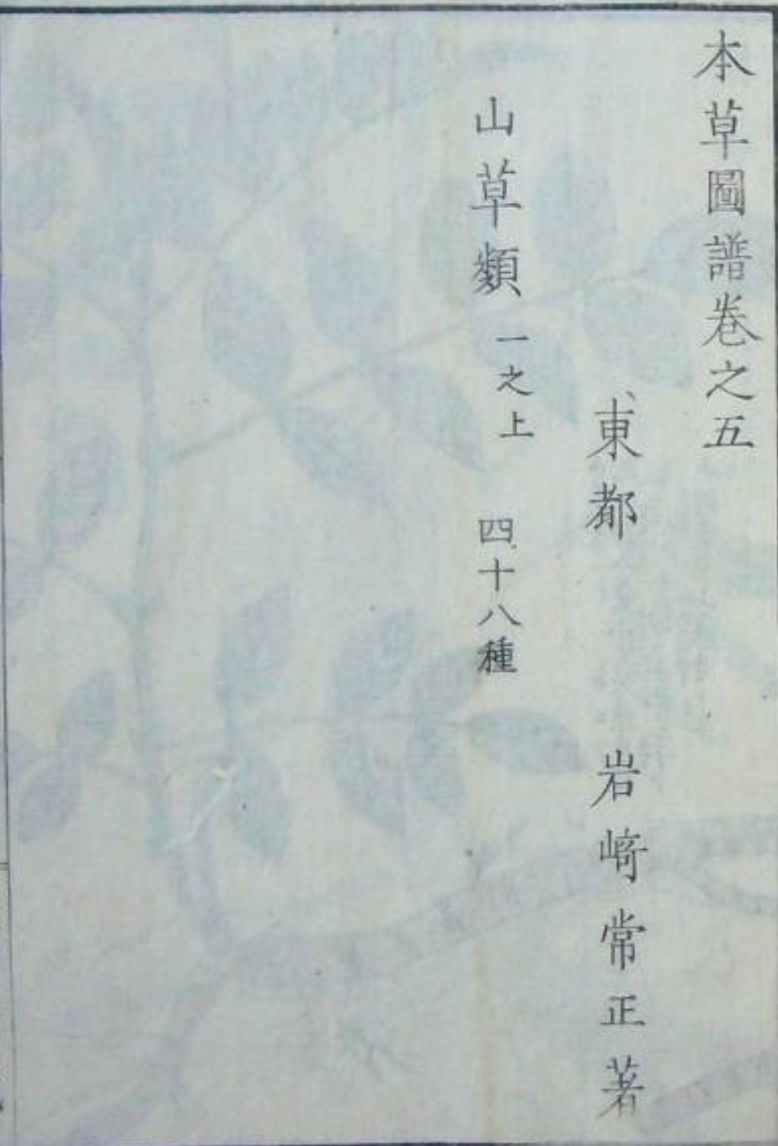 本草圖譜卷之五
東都　岩﨑常正著
山草類　一之上　四十八種